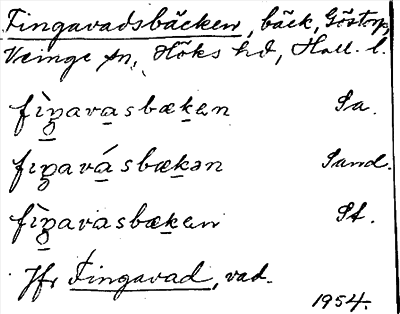 Fingavadsbäcken, bäck, Göstorp,
Veinge sn, Höks hd, Hall. l.
fìŋavasbækan Sa.
fiŋavásbækən Sand.
fìŋavasbækan St.
Jfr Fingavad, vad.
1954.